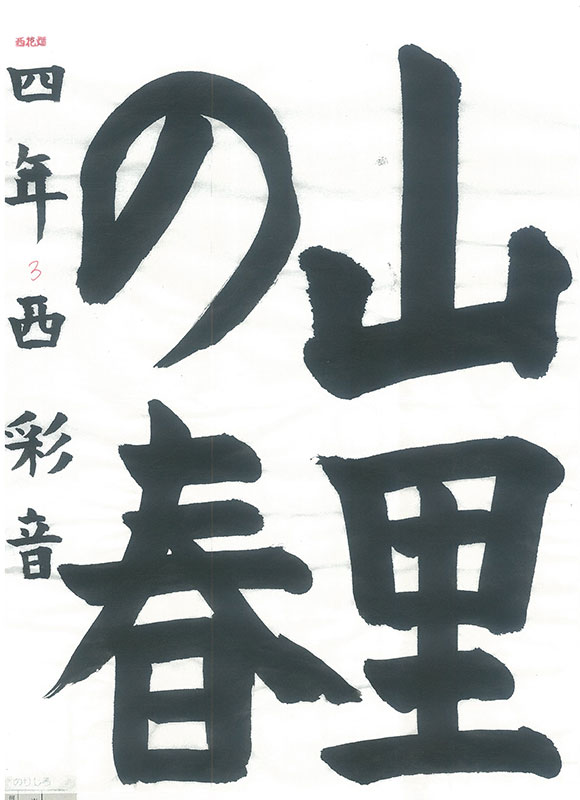 山里
の春
四年西彩音
3
西花畑
のりしろ